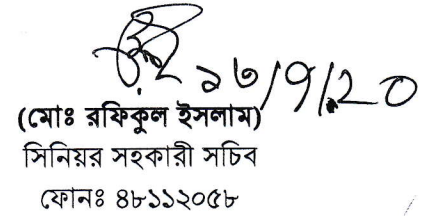 ১৬/৭/২০
(মোঃ রফিকুল ইসলাম)
সিনিয়র সহকারী সচিব
ফোনঃ ৪৮১১২০৫৮